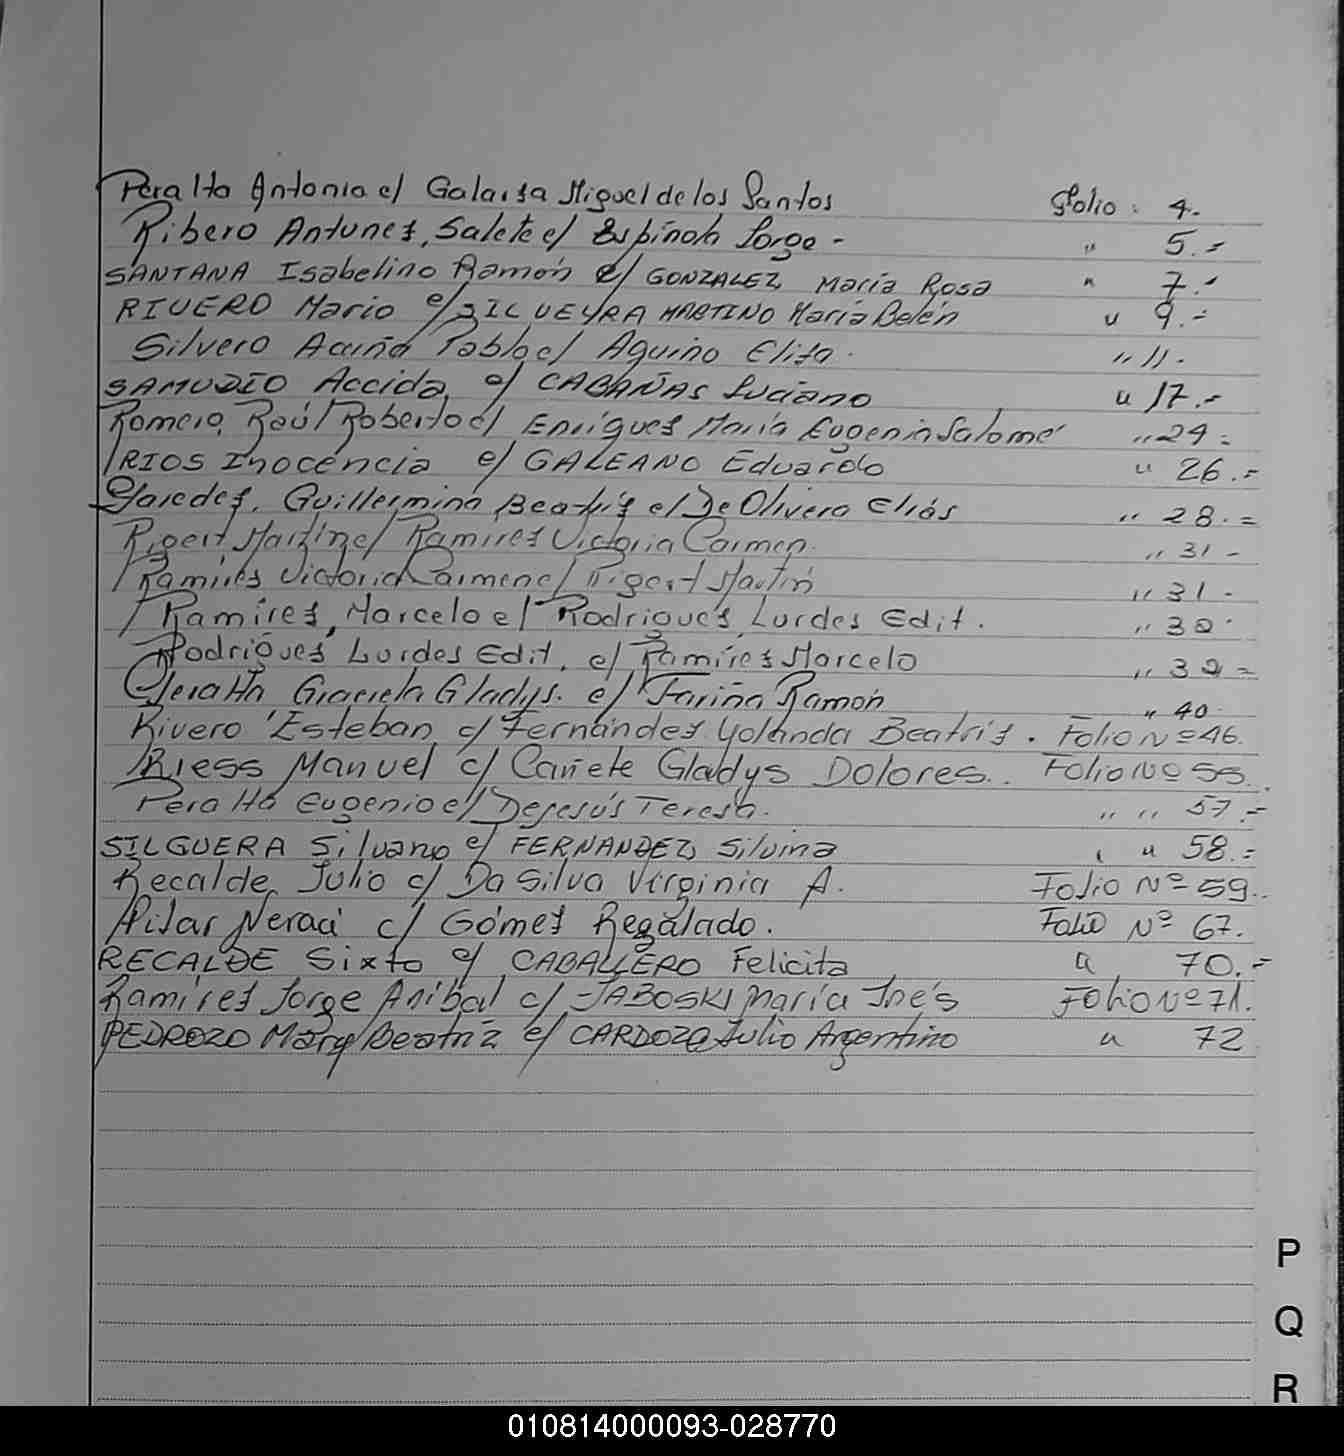 Peralta Antonia c/ Galarsa Miguel de los Santos Folio: 4.
Ribero Antunes, Salete c/ Espinola Jorge - " 5.=
SANTANA Isabelino Ramón c/ GONZALEZ María Rosa " 7.-
RIVERO Mario c/ SILVEYRA MARTINO María Belén " 9.-
Silvero Acuña Pablo c/ Aquino Elisa. " 11.
SAMUDIO Accida c/ CABAÑAS Luciano " 17.-
Romero, Raúl Roberto c/ Enrígues María Eugenia Salomé " 24=
RIOS Inocencia c/ GALEANO Eduardo " 26.=
Paredes, Guillermina Beatrís c/ De Olivera Elías " 28.=
Rigert Martín c/ Ramires Victoria Carmen. " 31-
Ramires Victoria Carmen c/ Rigert Martín " 31-
Ramires, Marcelo c/ Rodrigues Lurdes Edit. "
Rodrigues Lurdes Edit. c/ Ramires Marcelo "
Peralta Graciela Gladys. c/ Fariña Ramón " 40.
Rivero Esteban c/ Fernández Yolanda Beatrís. Folio Nº 46.
Riess Manuel c/ Cañete Gladys Dolores.. Folio Nº 55.
Peralta Eugenio c/ Dejesús Teresa. " " 57.=
SILGUERA Silvano c/ FERNANDEZ Silvina " " 58.=
Recalde Julio c/ Da Silva Virginia A. Folio Nº 59..
Pilar c/ Gómes Regalado. Folio Nº 67.
RECALDE Sixto c/ CABALLERO Felicita " 70.=
Ramires Jorge Aníbal c/ JABOSKI María Inés Folio Nº 71.
PEDROZO Mary Beatriz c/ CARDOZO Julio Argentino " 72
P
Q
R
010814000093-028770